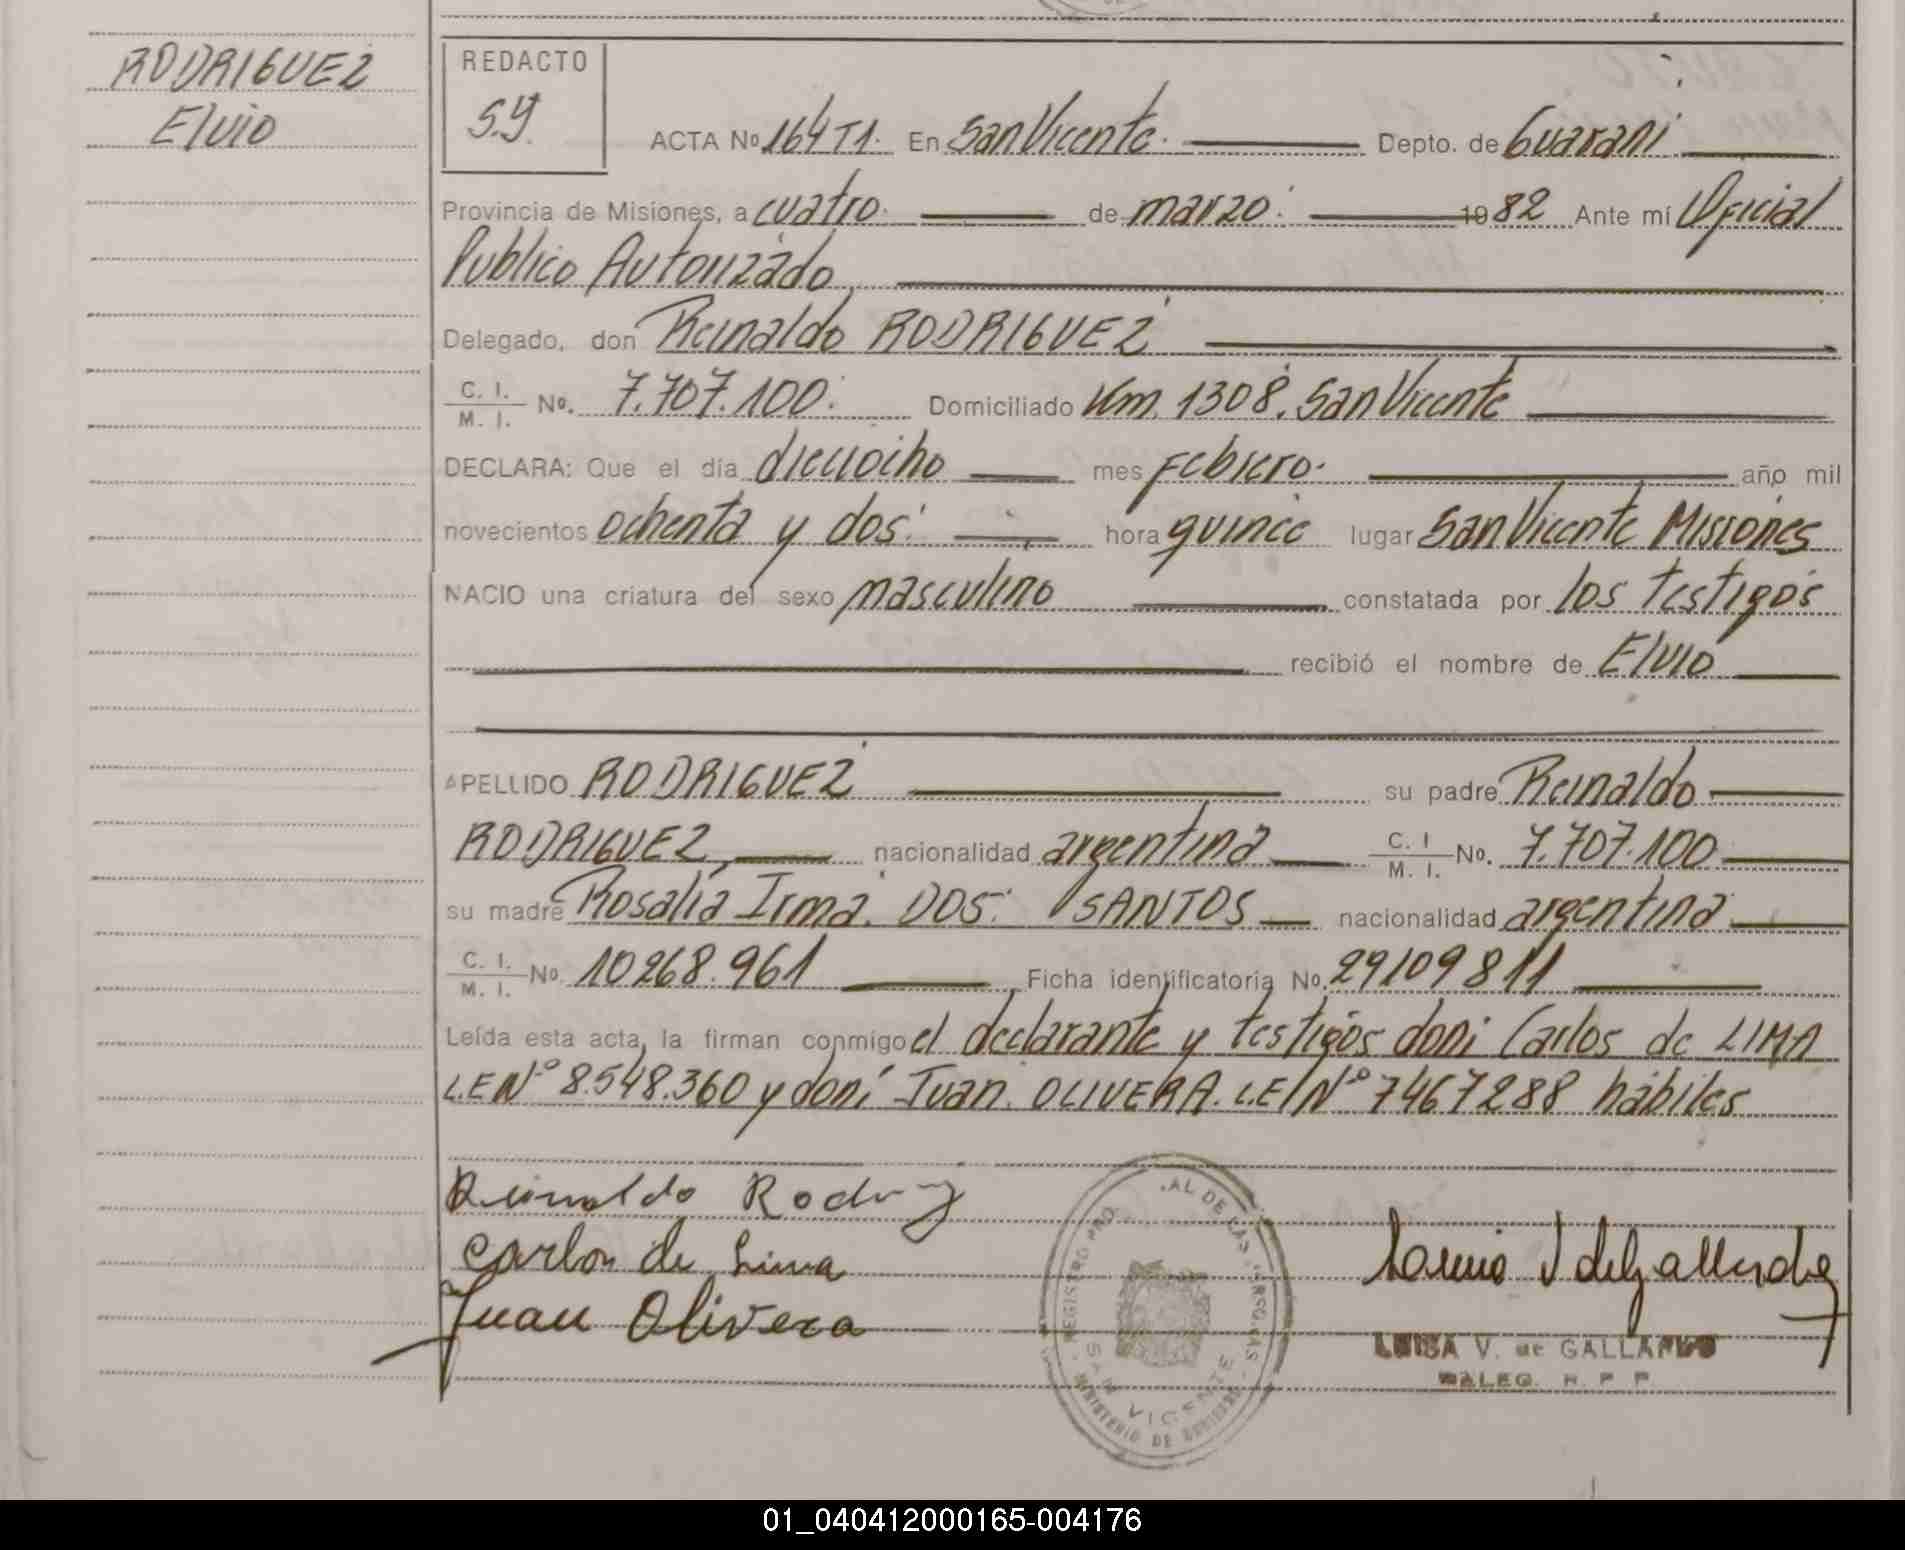 RODRIGUEZ
Elvio
REDACTO
S.Y.
ACTA No 164 T1. En San Vicente. Depto. de Guaraní
Provincia de Misiones, a cuatro. de marzo. 1982 Ante mí Oficial
Publico Autorizado
Delegado, don Reinaldo RODRIGUEZ
C. I. / M. I. No. 7.707.100. Domiciliado Km. 1308. San Vicente
DECLARA: Que el día dieciocho mes Febrero. año mil
novecientos ochenta y dos. hora quince lugar San Vicente Misiones
NACIO una criatura del sexo masculino constatada por los testigos
recibió el nombre de Elvio
APELLIDO RODRIGUEZ su padre Reinaldo
RODRIGUEZ, nacionalidad argentina C. I / M. I. No. 7.707.100
su madre Rosalia Irma. DOS. SANTOS nacionalidad argentina
C. I. / M. I. No. 10268.961 Ficha identificatoria No. 29109811
Leída esta acta, la firman conmigo el declarante y testigos don: Carlos de LIMA
L.E Nº 8.548.360 y don: Juan. OLIVERA. L.E Nº 7467288 hábiles
Reinaldo
Carlos de Lima
Juan Olivera
REGISTRO PRO AL DE LAS
SAN VICENTE
MINISTERIO DE GOBIERNO
LUISA V. de GALLARDO
DALEG. R. P. P.
01_040412000165-004176